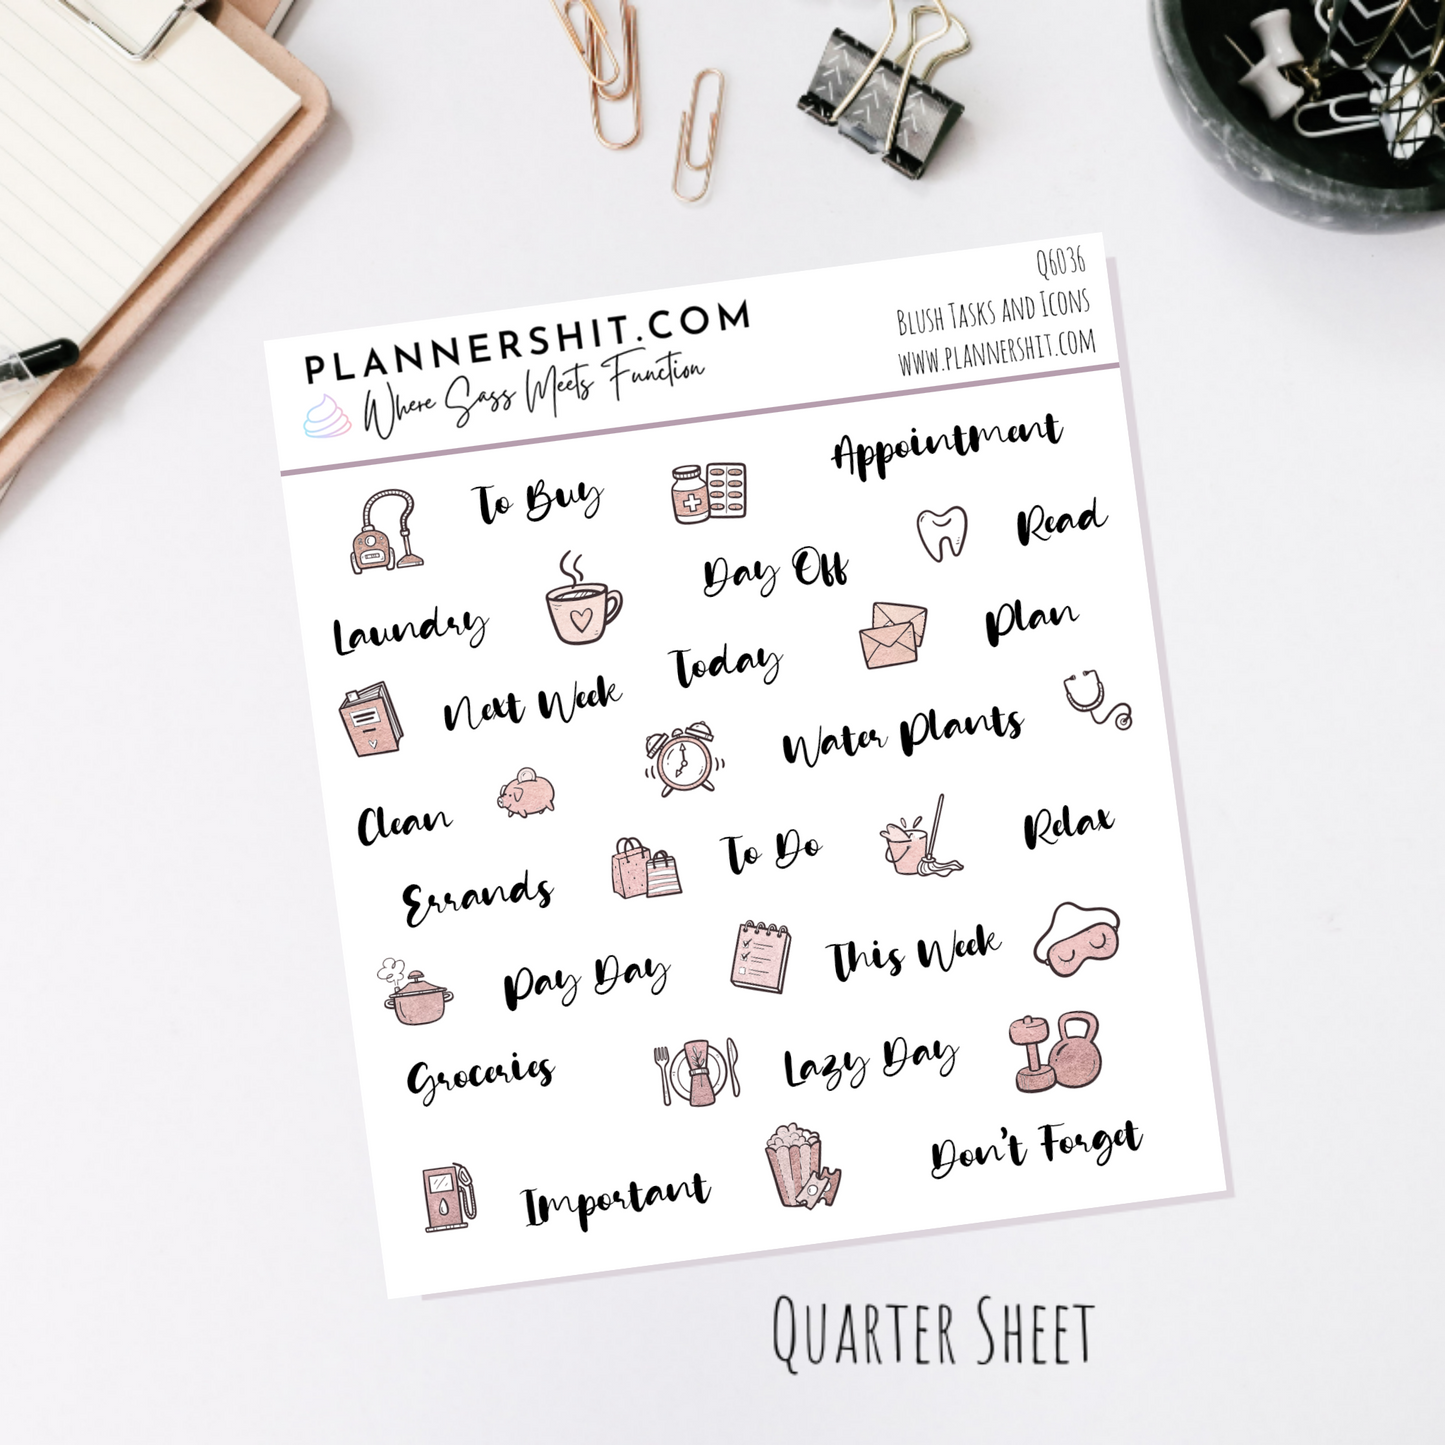 PLANNERSHIT.COM
Where Sass Meets Function
Q6036
Blush Tasks and Icons
www.plannershit.com
To Buy
Appointment
Read
Day Off
Laundry
Plan
Today
Next Week
Water Plants
Clean
To Do
Relax
Errands
This Week
Pay Day
Lazy Day
Groceries
Don't Forget
Important
Quarter Sheet